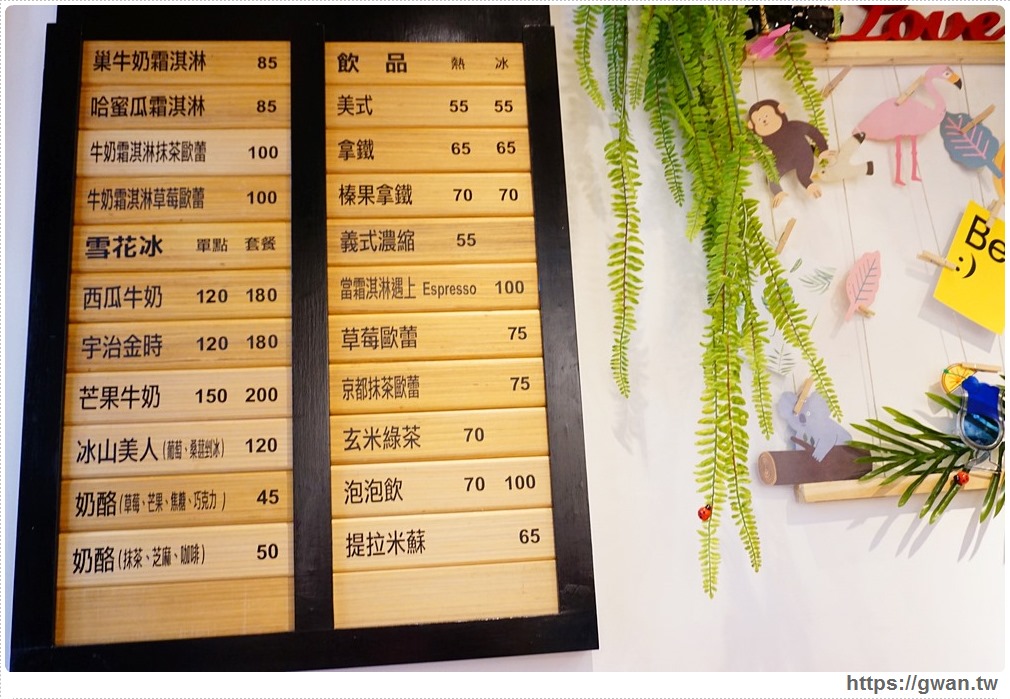 巢牛奶霜淇淋 85
哈蜜瓜霜淇淋 85
牛奶霜淇淋抹茶歐蕾 100
牛奶霜淇淋草莓歐蕾 100
雪花冰 單點 套餐
西瓜牛奶 120 180
宇治金時 120 180
芒果牛奶 150 200
冰山美人(葡萄、桑葚剉冰) 120
奶酪(草莓、芒果、焦糖、巧克力) 45
奶酪(抹茶、芝麻、咖啡) 50
飲 品 熱 冰
美式 55 55
拿鐵 65 65
榛果拿鐵 70 70
義式濃縮 55
當霜淇淋遇上 Espresso 100
草莓歐蕾 75
京都抹茶歐蕾 75
玄米綠茶 70
泡泡飲 70 100
提拉米蘇 65
Love
Be
:)
https://gwan.tw